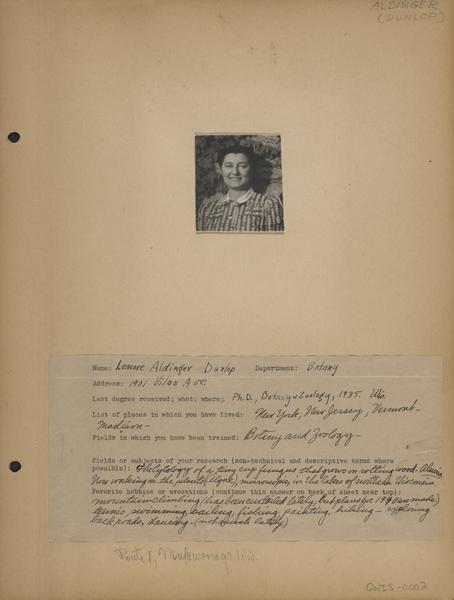 ALDINGER
(DUNLOP)
Name: Lenore Aldinger Dunlop Department: Botany
Address: 1901 Vilas Ave.
Last degree received; what; where: Ph.D., Botany & Zoology, 1935. Wis.
List of places in which you have lived: New York, New Jersey, Vermont-
Madison -
Fields in which you have been trained: Botany and Zoology -
Fields or subjects of your research (non-technical and descriptive terms where
possible): The Cytology of a tiny cup fungus that grows on rotting wood-
Now working on the plants (algae), microscopic, in the lakes of northern Wisconsin.
Favorite hobbies or avocations (continue this answer on back of sheet near top):
mountain climbing, (has been curtailed lately, but plans for 19 are made)
tennis, swimming, sailing, fishing, painting, hiking - exploring
back roads, dancing - (not much lately)
Route 1, Mukwonago Wis.
QWIS-0002